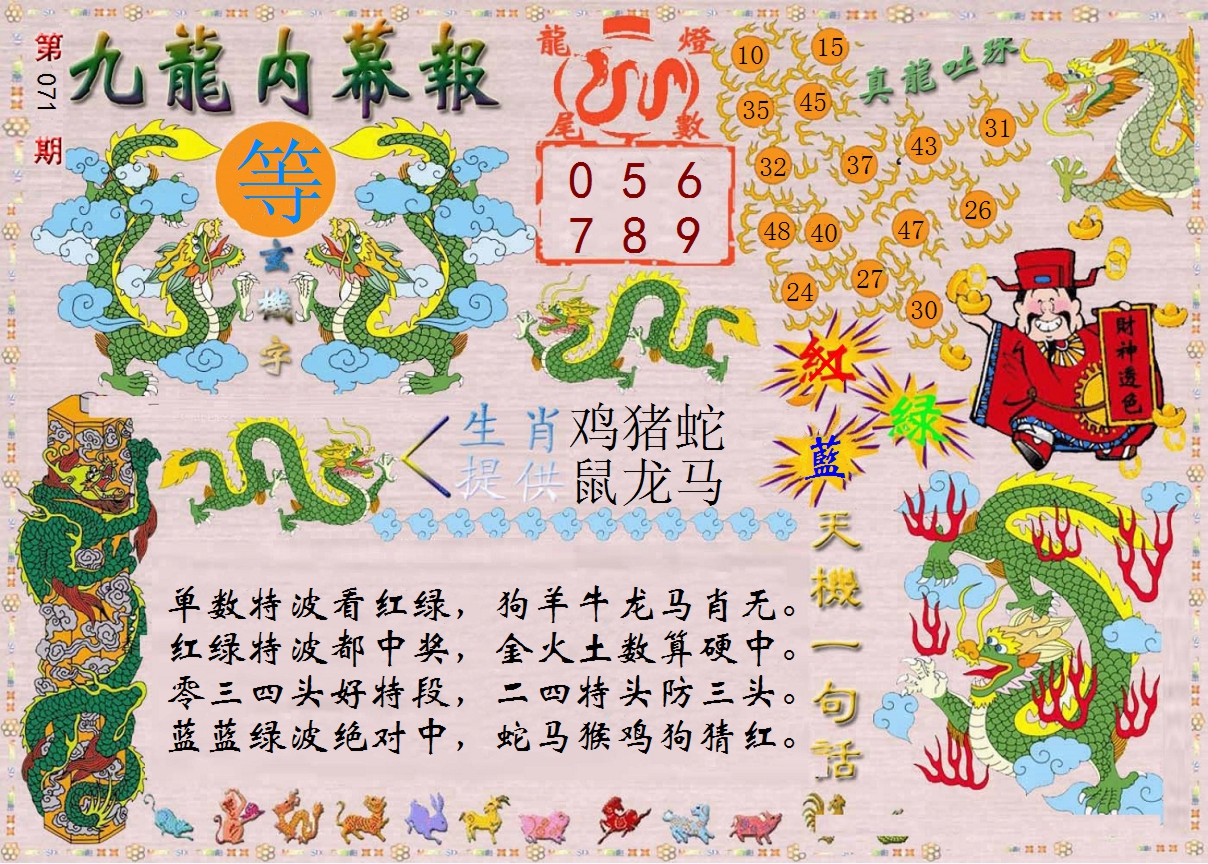 第071期
九龍内幕報
等
玄機字
龍燈尾數
0 5 6
7 8 9
真龍吐珠
10 15
35 45
32 37 43 31
48 40 47 26
24 27 30
財神透色
紅
绿
藍
生肖提供
鸡猪蛇
鼠龙马
天機一句話
单数特波看红绿，狗羊牛龙马肖无。
红绿特波都中奖，金火土数算硬中。
零三四头好特段，二四特头防三头。
蓝蓝绿波绝对中，蛇马猴鸡狗猜红。